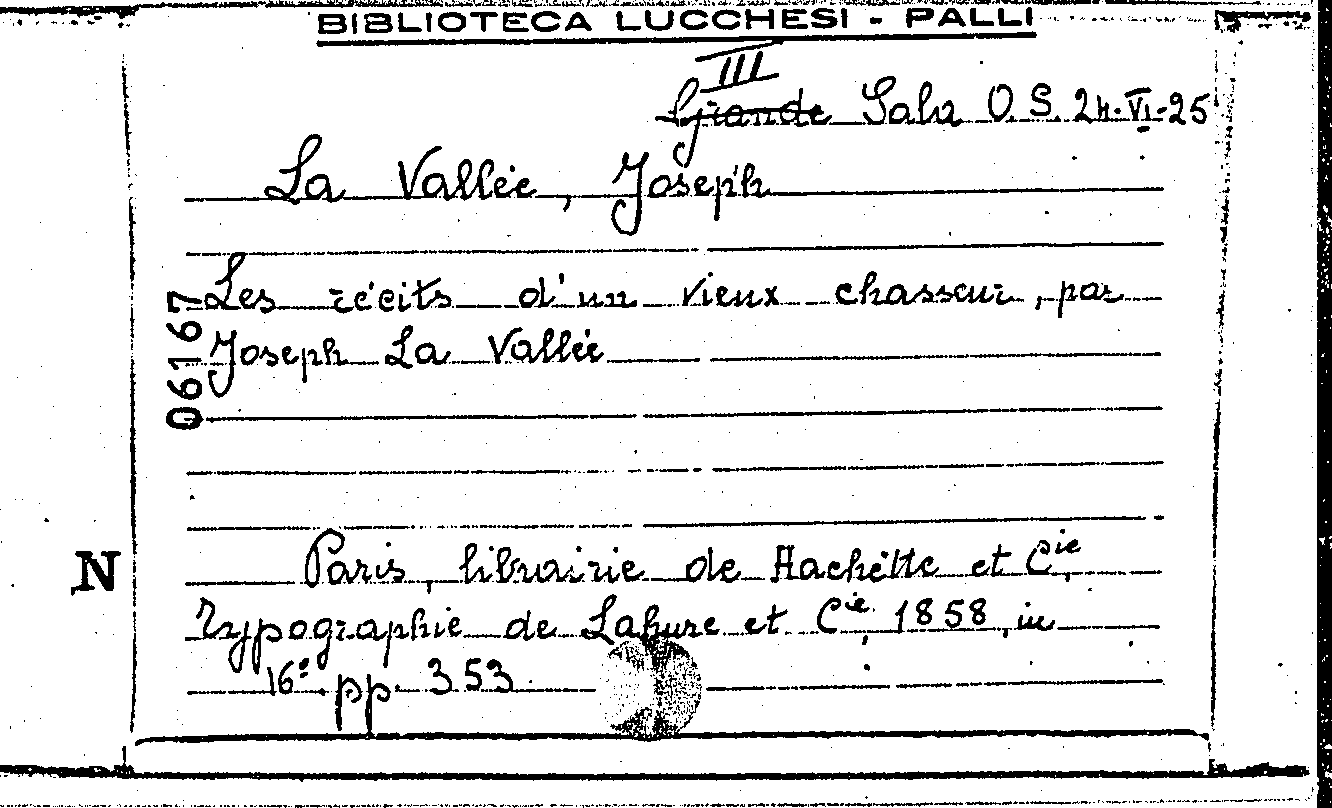 BIBLIOTECA LUCCHESI - PALLI
III
Grande Sala O. S. 24-VI-25
La Vallée, Joseph
Les récits d'un vieux chasseur, par
Joseph La Vallée
06167
N
Paris, librairie de Hachette et Cie,
Typographie de Lahure et Cie, 1858, in
16º pp. 353